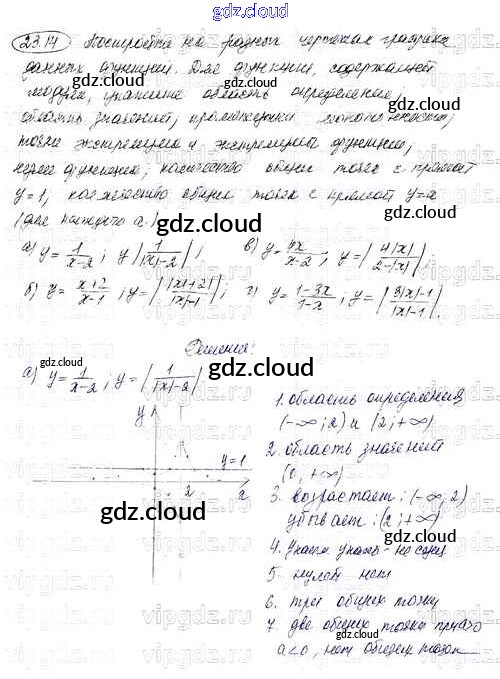 gdz.cloud
23.14 Постройте на разных чертежах графики
данных функций. Для функции, содержащей
модули, укажите область определения,
область значений, промежутки монотонности,
точки экстремума и экстремумы функции,
нули функции; количество общих точек с прямой
y=1, количество общих точек с прямой y=a
(для каждого a.)
а) y = 1/(x-2); y |1/(|x|-2)|; в) y = 4x/(x-2); y = |4|x|/(2-|x|)|;
б) y = (x+2)/(x-1); y = |(|x|+2)/(|x|-1)|; г) y = (1-3x)/(1-x); y = |(3|x|-1)/(|x|-1)|.
Решение:
а) y = 1/(x-2); y = |1/(|x|-2)|
y
y=1
2
x
1. область определения
(-∞; 2) и (2; +∞)
2. область значений
(0, +∞)
3. возрастает: (-∞; 2)
убывает: (2; +∞)
5. нулей нет
6. три общих точки
7 две общих точки при a>0
a<0, нет общих точек
vipgdz.ru